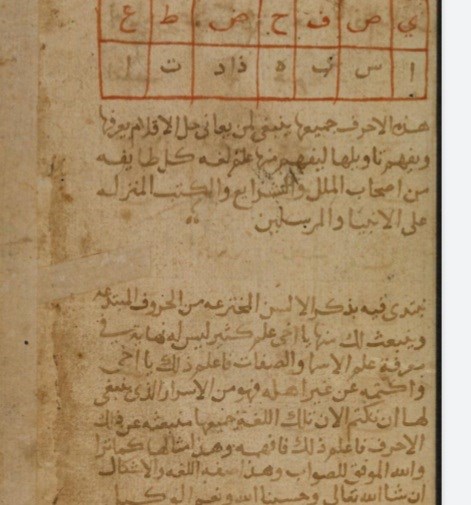 ي ص ف ح ض ط ع
ا س ب ه ذاد ت ا
هذه الاحرف جميعها ينبغي لمن يعاني حل الاقلام يعرفها
ويفهم تاويلها ليفهم منها علم لغه كل طايفه
من اصحاب الملل والشرايع والكتب المنزله
على الانبيا والمرسلين
نبتدي فيه بذكر الالسن المخترعه من الحروف المبتدعه
وينبعث لك منها يا اخي علم كثير ليس له نهاية في
معرفة علم الاسما والصفات فاعلم ذلك يا اخي
واكتمه عن غير اهله فهو من الاسرار الذي ينبغي
لها ان تكتم لان تلك اللغة جميعها منبعثه عن ذلك
الاحرف فاعلم ذلك فافهمه وهذا مثالها كما ترا
والله الموفق للصواب وهذا صفه اللغه والاشكال
ان شا الله تعالى وحسبنا الله ونعم الوكيل